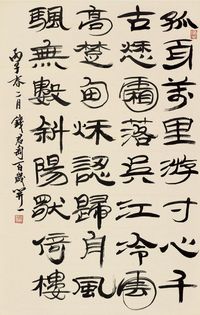 孤身萬里游寸心千
古愁霜落吳江冷雲
高楚甸秌認歸舟風
颿無數斜陽獨倚樓
丙子春二月錢君匋百歲開一